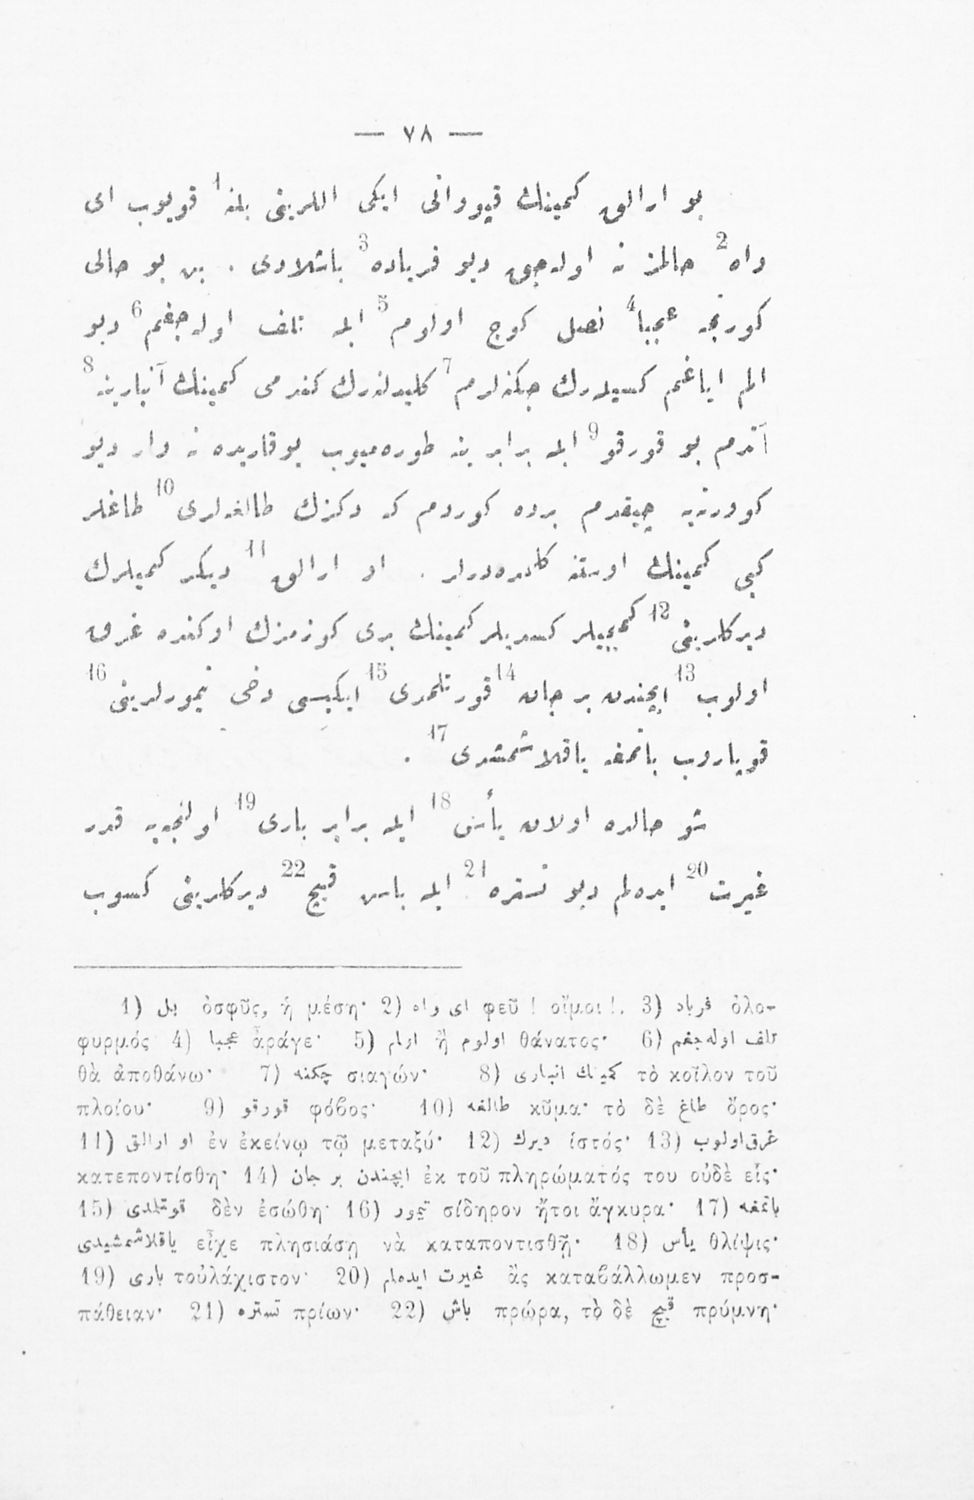 — ٧٨ —
بو ارالق كمينك قپودانى ايكى اللرينى بلنه1 قويوب اى
واه2 حالمز نه اوله‌جق ديو فرياده3 باشلادى . بن بو حالى
كورنجه عجبا4 نصل كوچ اولوم5 ايله تلف اوله‌جغم6 ديو
الم اياغم كسيله‌رك چكنه‌لرم7 كليدلنه‌رك كندمى كمينك آنبارينه8
آتدم بو قورقو9 ايله برابر ينه طوره‌ميوب يوقاريده نه وار ديو
كورمكه چيقدم برده كوردم كه دكزك طالغه‌لرى10 طاغلر
كبى كمينك اوستنه كلمده‌درلر . او ارالق11 ديكر كميلرك
ديركلرينى12 كميجيلر كسديلر كمينك برى كوزمزك اوكنده غرق
اولوب13 ايچندن بر جان14 قورتلمدى15 ايكيسى دخى تيمورلرينى16
قوپاروب باتمغه ياقلاشمشدى17 .
شو حالده اولان يأس18 ايله برابر بارى19 اولنجه‌يه قدر
غيرت20 ايده‌لم ديو تستره21 ايله باش قيچ22 ديركلرينى كسوب
1) بل ὀσφῦς, ἡ μέση· 2) اى واه φεῦ ! οἴμοι !. 3) فرياد ὀλο-
φυρμός 4) عجبا ἆράγε· 5) اولوم ἢ اولم θάνατος· 6) تلف اوله‌جغم
θὰ ἀποθάνω· 7) چكنه σιαγών· 8) كمينك انبارى τὸ κοῖλον τοῦ
πλοίου· 9) قورقو φόβος· 10) طالغه κῦμα· τὸ δὲ طاغ ὄρος·
11) او ارالق ἐν ἐκείνῳ τῷ μεταξύ· 12) ديرك ἱστός· 13) غرق اولوب
κατεποντίσθη· 14) ايچندن بر جان ἐκ τοῦ πληρώματός του οὐδὲ εἷς·
15) قورتلمدى δὲν ἐσώθη· 16) تيمور σίδηρον ἤτοι ἄγκυρα· 17) باتمغه
ياقلاشمشيدى εἶχε πλησιάσῃ νὰ καταποντισθῇ· 18) يأس θλίψις·
19) بارى τοὐλάχιστον· 20) غيرت ايده‌لم ἂς καταβάλλωμεν προσ-
πάθειαν· 21) تستره πρίων· 22) باش πρώρα, τὸ δὲ قيچ πρύμνη·